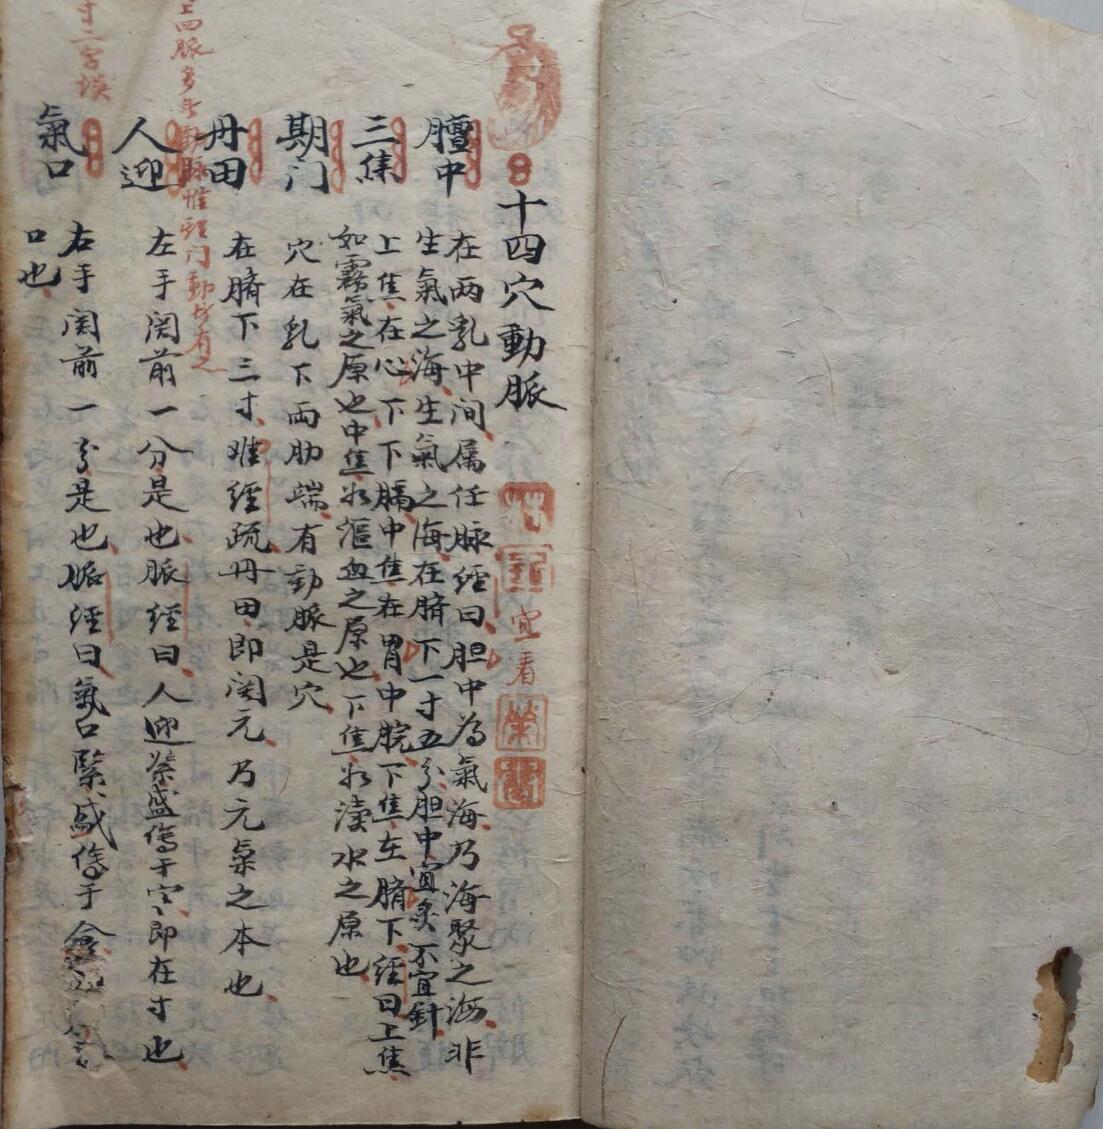 十四穴動脈
宜看
膻中
在两乳中间属任脉經曰胆中為氣海乃海聚之海非
生氣之海生氣之海在臍下一寸五分胆中宜灸不宜針
三焦
上焦在心下下膈中焦在胃中脘下焦在臍下經曰上焦
如霧氣之原也中焦如漚血之原也下焦如瀆水之原也
期门
穴在乳下两肋端有動脈是穴
丹田
在臍下三寸难經疏丹田即関元乃元氣之本也
上四脈多無動脉惟期门動脉有之
人迎
左手関前一分是也脈經曰人迎緊盛傷于寒即在寸也
寸二字误
氣口
右手関前一分是也脈經曰氣口緊盛傷于食
口也